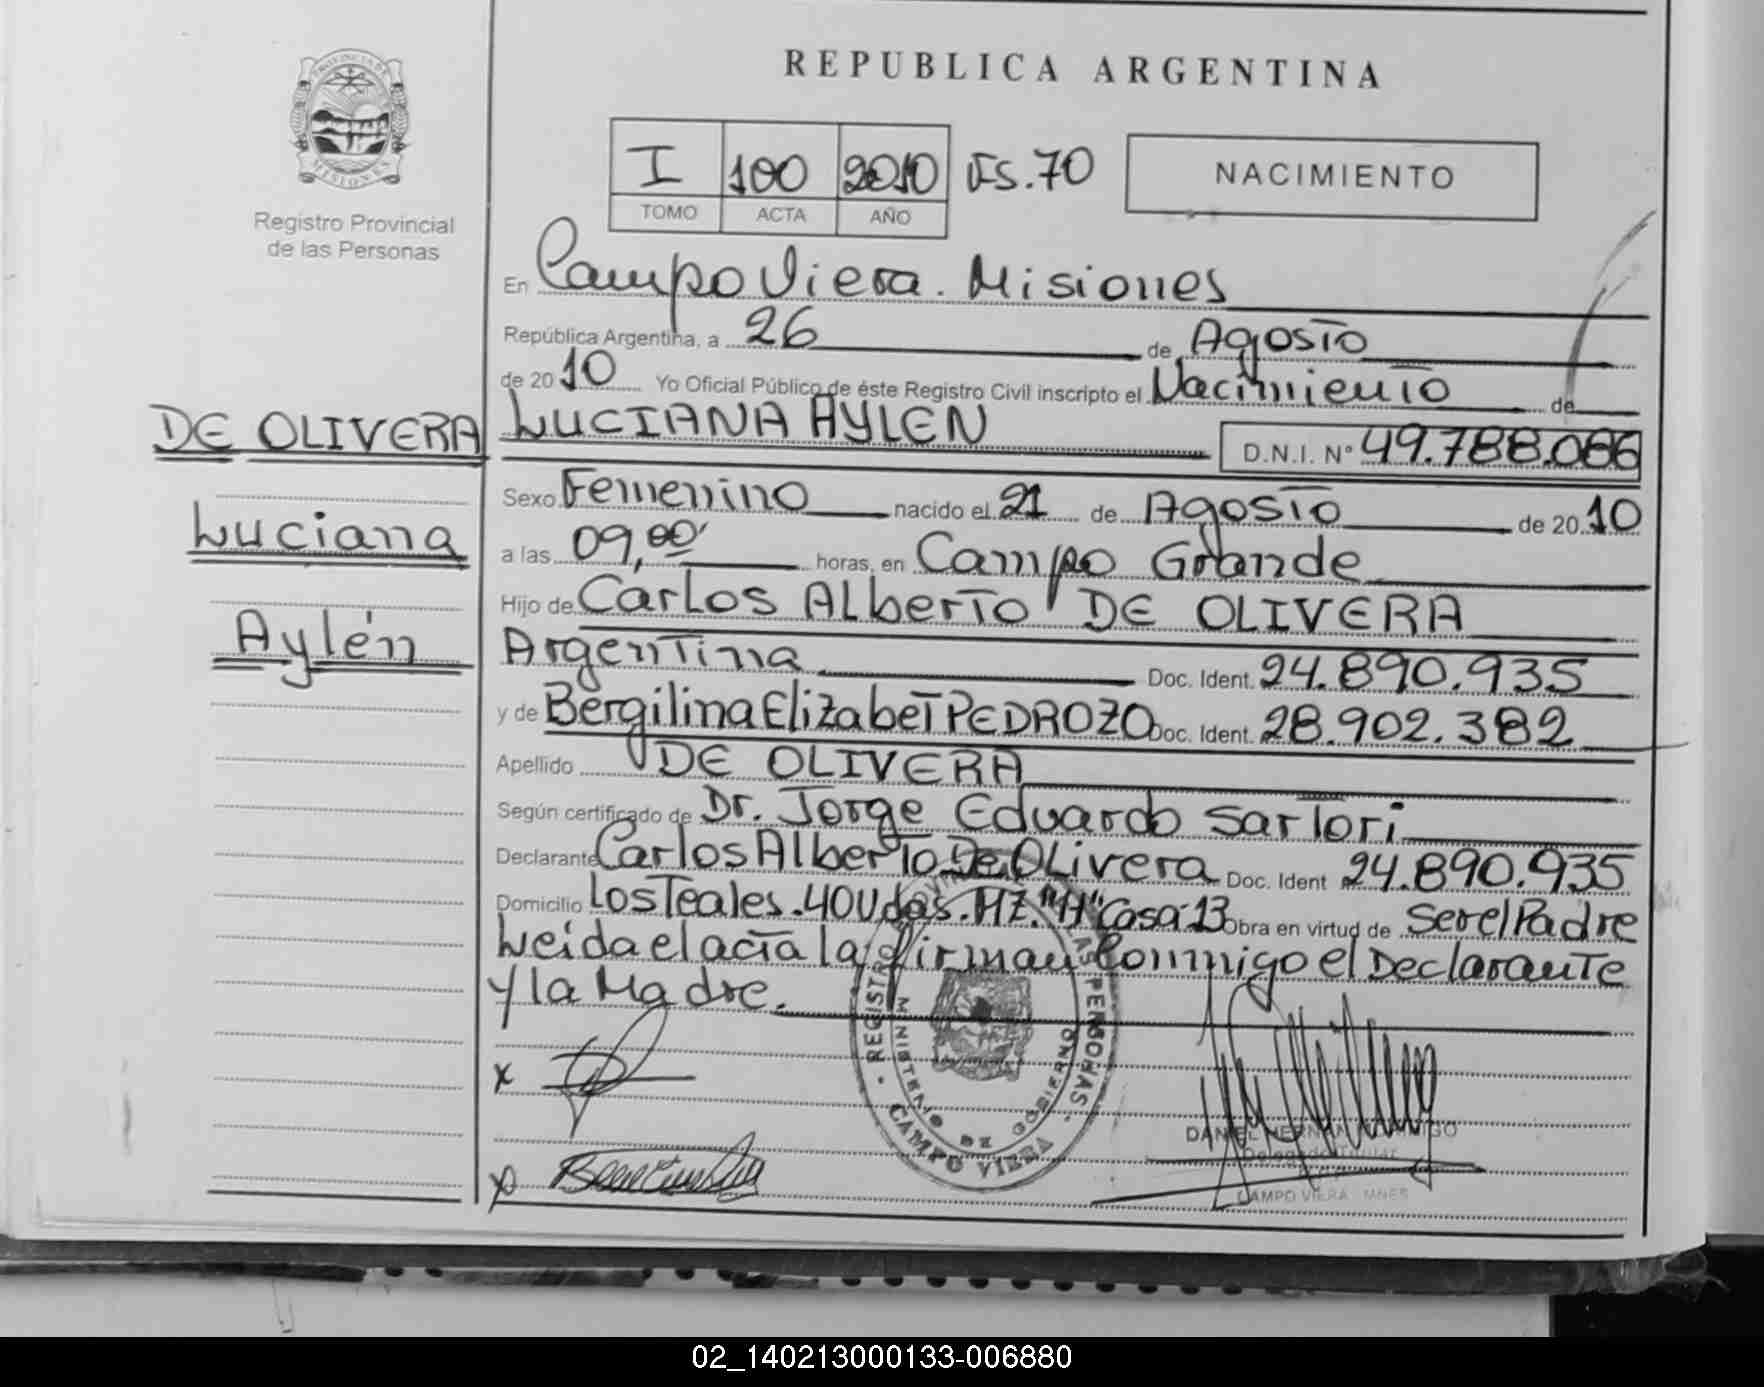 REPUBLICA ARGENTINA
PROVINCIA DE MISIONES
Registro Provincial
de las Personas
I 100 2010 FS.70
TOMO ACTA AÑO
NACIMIENTO
En Campo Viera. Misiones
República Argentina, a 26 de Agosto
de 2010 Yo Oficial Público de éste Registro Civil inscripto el Nacimiento de
DE OLIVERA LUCIANA AYLEN D.N.I. Nº 49.788.086
Luciana
Aylén
Sexo Femenino nacido el 21 de Agosto de 2010
a las 09,00' horas, en Campo Grande
Hijo de Carlos Alberto DE OLIVERA
Argentina Doc. Ident. 24.890.935
y de Bergilina Elizabet PEDROZO Doc. Ident. 28.902.382
Apellido DE OLIVERA
Según certificado de Dr. Jorge Eduardo Sartori
Declarante Carlos Alberto De Olivera Doc. Ident 24.890.935
Domicilio Los Teales. 40 Vdas. MZ."H" Casa 13 Obra en virtud de Ser el Padre
Leida el acta la firman Conmigo el Declarante
y la Madre.
x
x
REGISTRO PERSONAS
MINISTERIO DE GOBIERNO
CAMPO VIERA
DANIEL HERNAN
Delegado Titular
CAMPO VIERA MNES
02_140213000133-006880